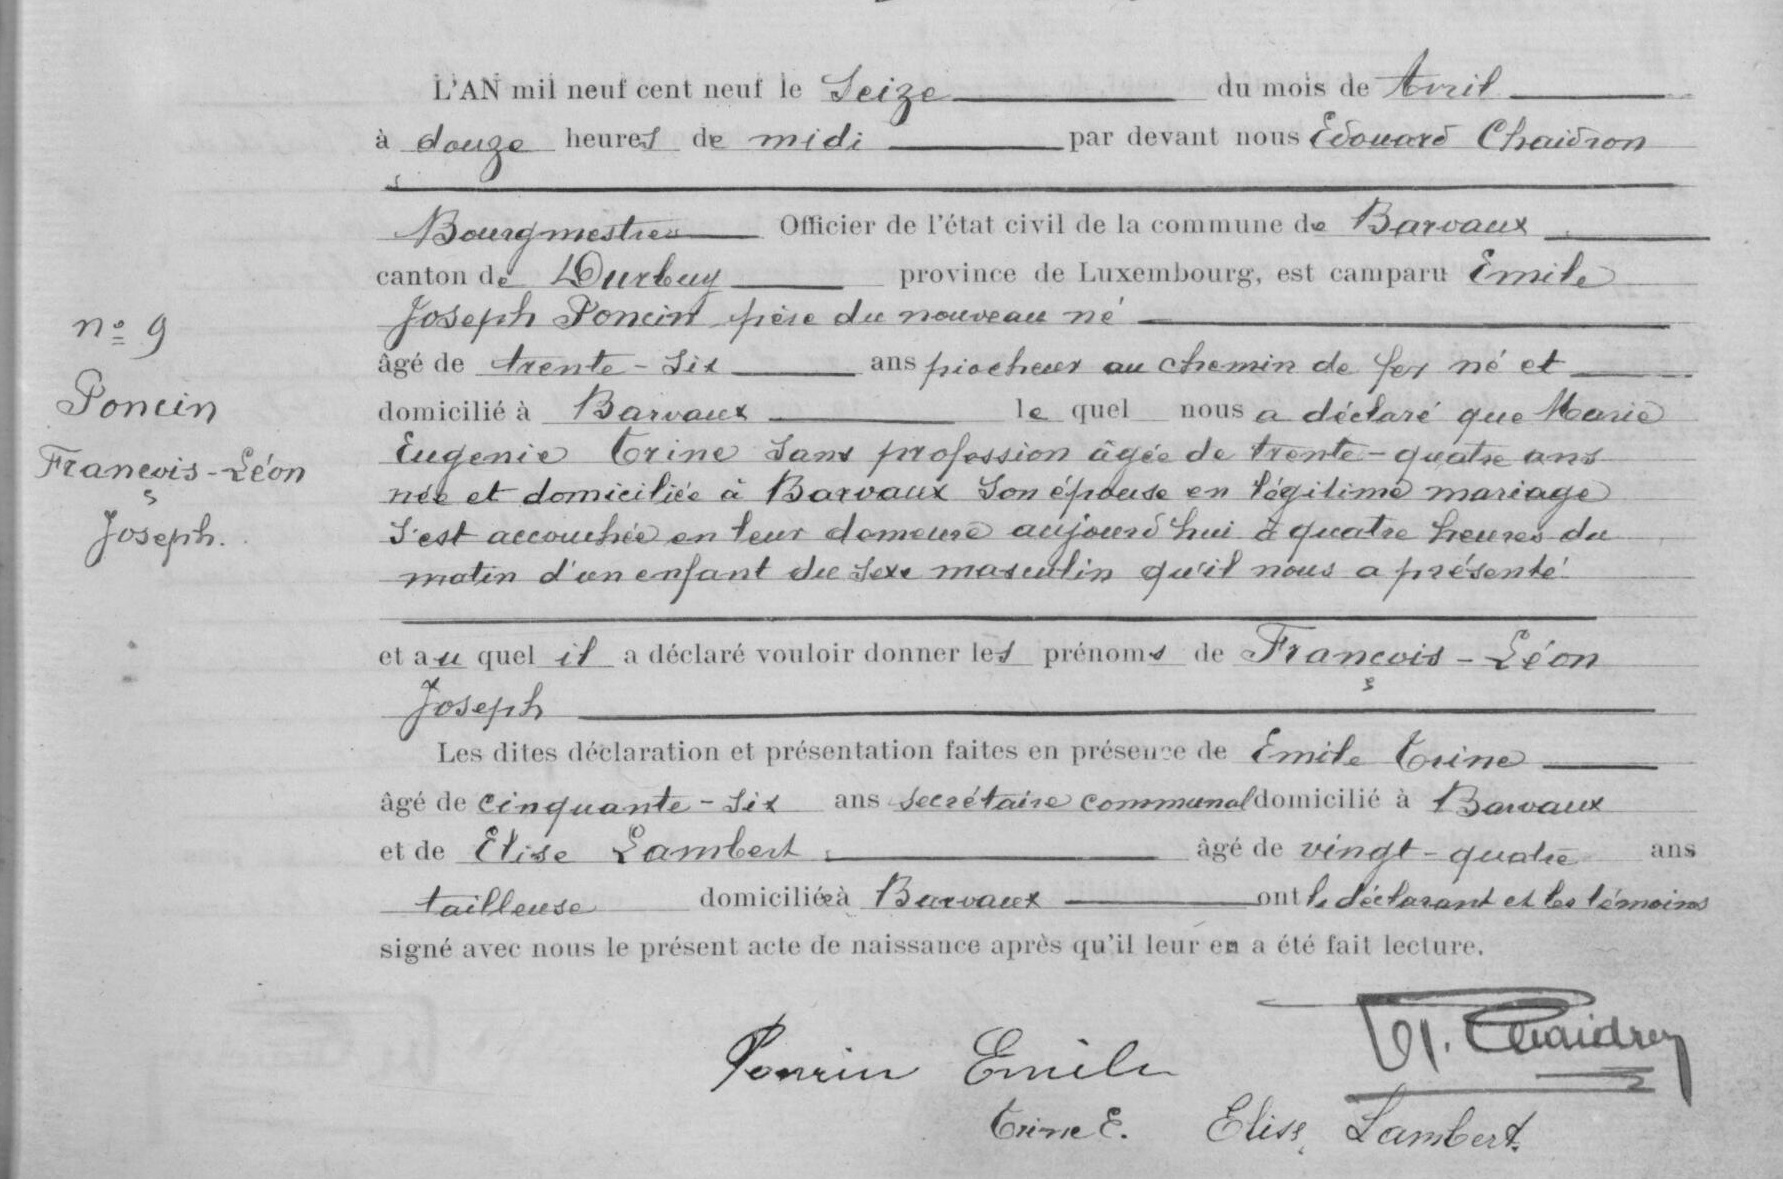 L'AN mil neuf cent neuf le Seize du mois de Avril
à douze heures de midi par devant nous Edouard Chaidron
Bourgmestre Officier de l'état civil de la commune de Barvaux
canton de Durbuy province de Luxembourg, est camparu Emile
Joseph Poncin père du nouveau né
nº 9
âgé de trente-six ans piocheur au chemin de fer né et
Poncin
domicilié à Barvaux le quel nous a déclaré que Marie
Eugenie Crine Sans profession âgée de trente-quatre ans
François-Léon
née et domiciliée à Barvaux Son épouse en légitime mariage
Joseph.
S'est accouchée en leur demeure aujourd'hui à quatre heures du
matin d'un enfant du Sexe masculin qu'il nous a présenté
et au quel il a déclaré vouloir donner les prénoms de François-Léon
Joseph
Les dites déclaration et présentation faites en présence de Emile Crine
âgé de cinquante-six ans secrétaire communal domicilié à Barvaux
et de Elise Lambert âgé de vingt-quatre ans
tailleuse domiciliée à Barvaux ont le déclarant et les témoins
signé avec nous le présent acte de naissance après qu'il leur en a été fait lecture.
Poncin Emile Chaidron
Crine E. Elise Lambert.